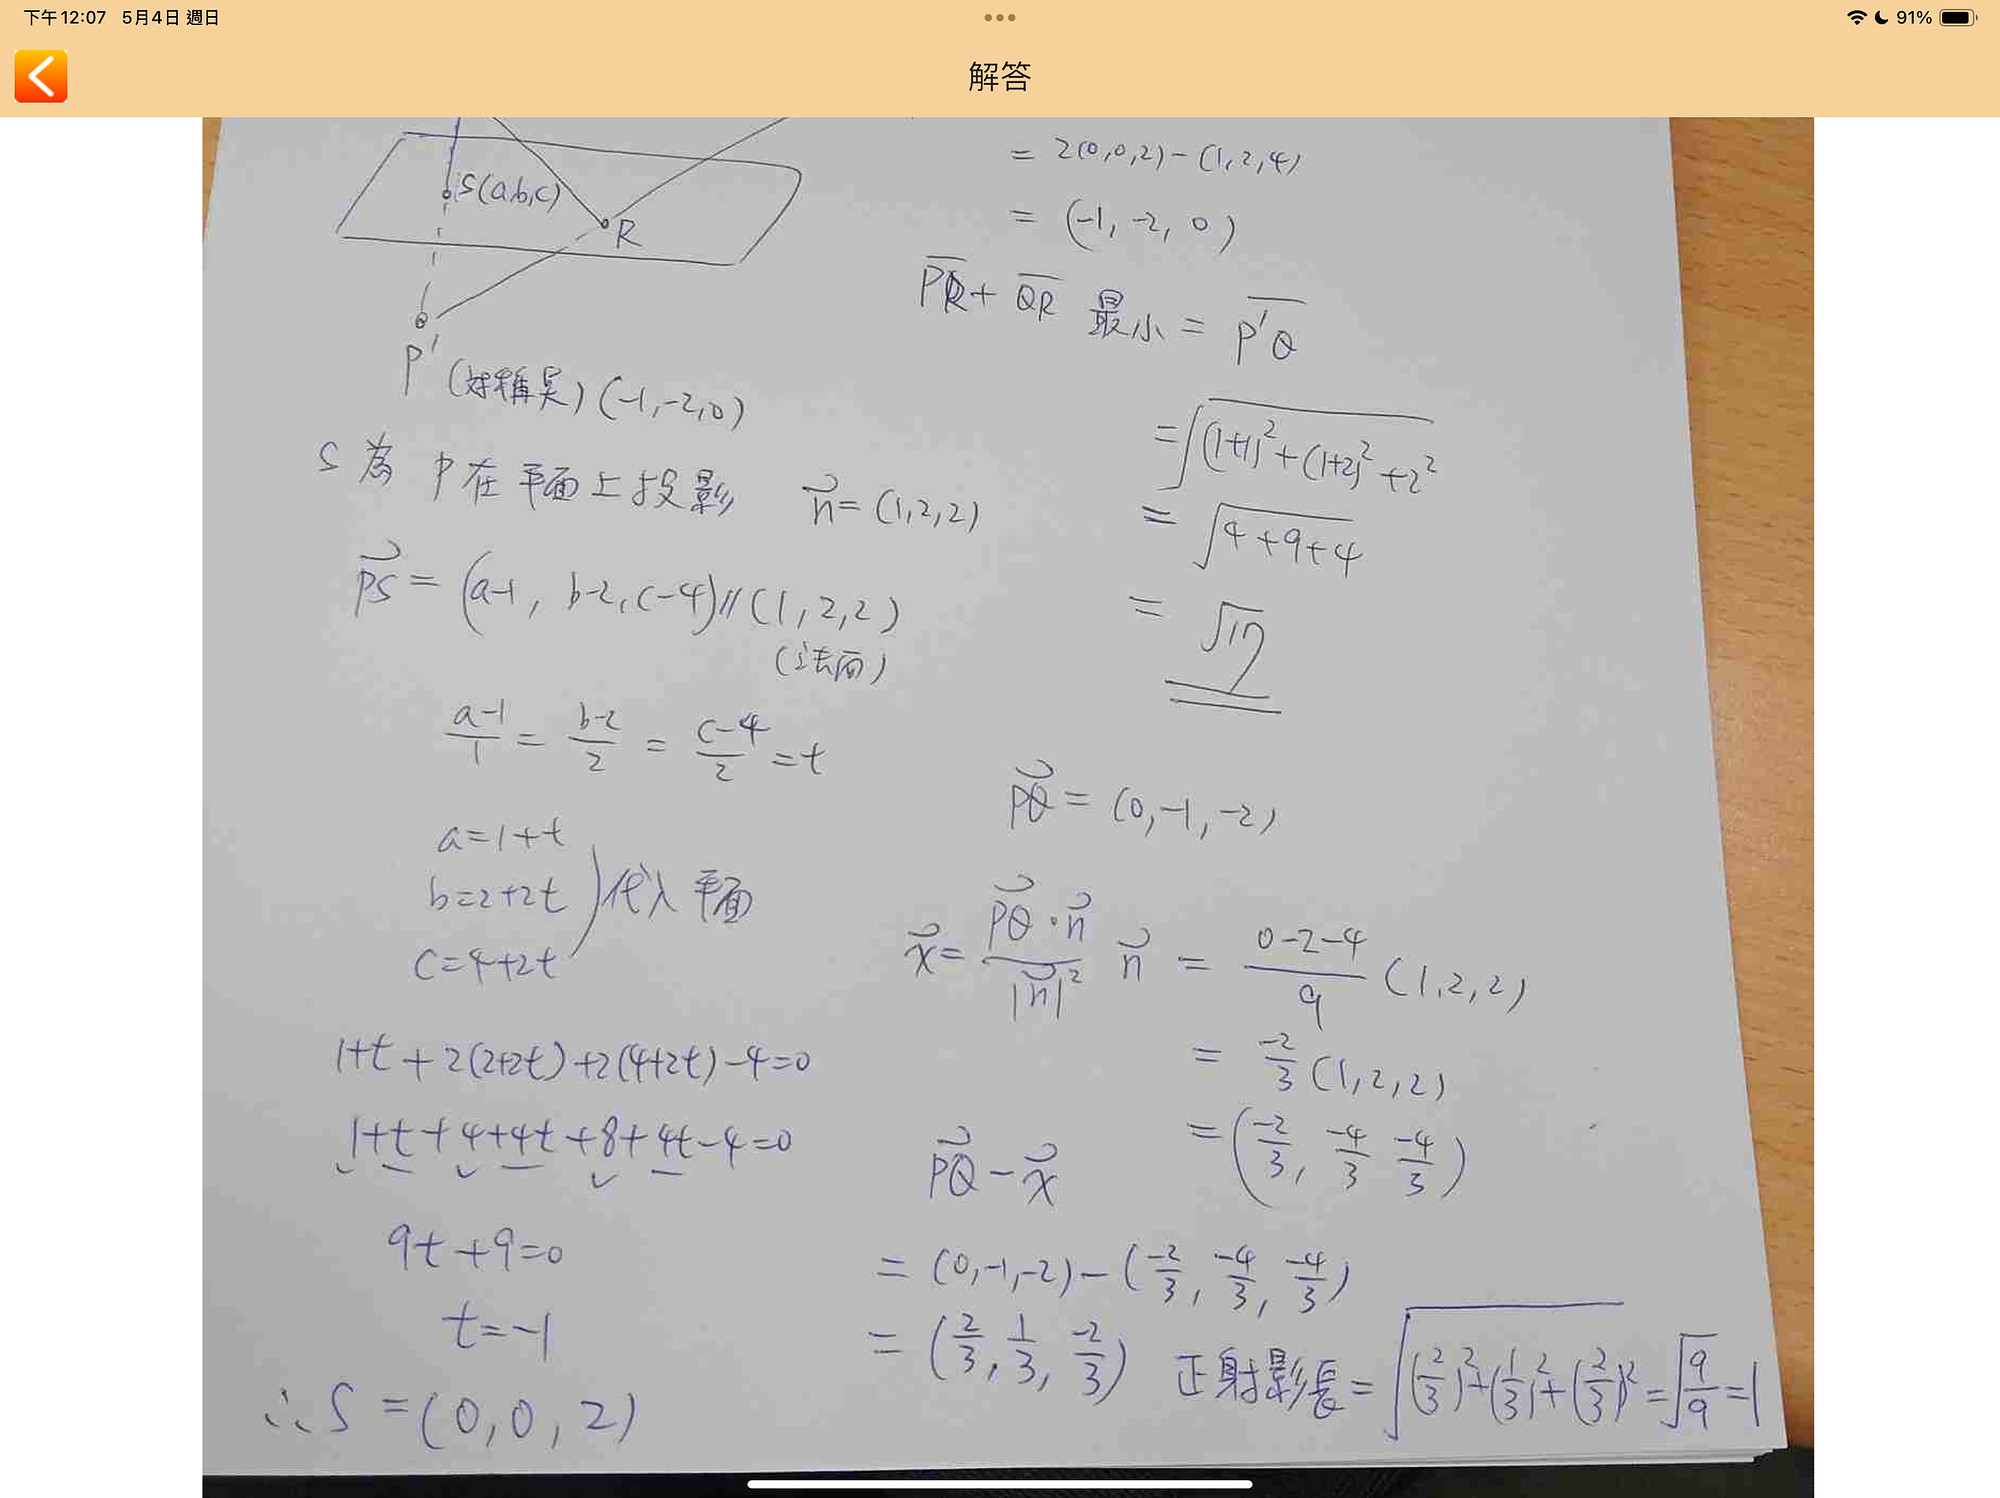 下午12:07 5月4日 週日
91%
解答
S(a,b,c)
R
P'(對稱點)(-1,-2,0)
S為P在平面上投影 n⃗=(1,2,2)
PS⃗=(a-1, b-2, c-4)//(1,2,2)
(法向)
(a-1)/1 = (b-2)/2 = (c-4)/2 = t
a=1+t
b=2+2t 代入平面
c=4+2t
1+t+2(2+2t)+2(4+2t)-4=0
1+t+4+4t+8+4t-4=0
9t+9=0
t=-1
∴S=(0,0,2)
=2(0,0,2)-(1,2,4)
=(-1,-2,0)
P̅R̅+Q̅R̅ 最小=P̅'̅Q̅
=√((1+1)²+(1+2)²+2²)
=√(4+9+4)
=√17
PQ⃗=(0,-1,-2)
x⃗=(PQ⃗·n⃗)/|n⃗|² n⃗ = (0-2-4)/9 (1,2,2)
= -2/3 (1,2,2)
=(-2/3, -4/3 -4/3)
PQ⃗-x⃗
=(0,-1,-2)-(-2/3, -4/3, -4/3)
=(2/3, 1/3, -2/3) 正射影長=√((2/3)²+(1/3)²+(2/3)²)=√(9/9)=1